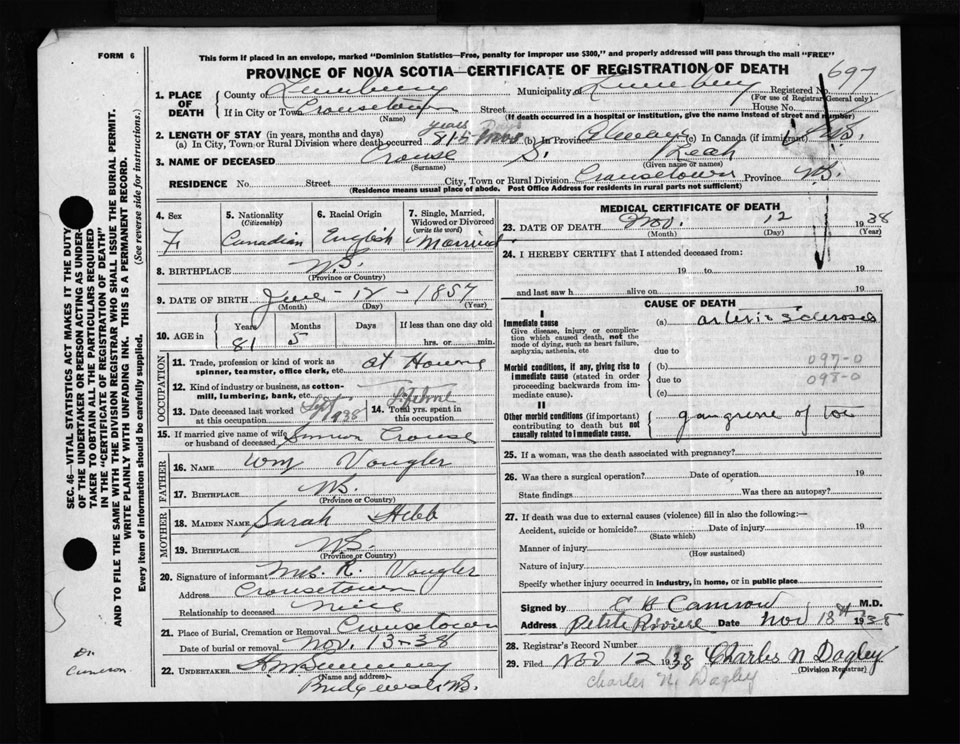 FORM 6
This form if placed in an envelope, marked "Dominion Statistics—Free, penalty for improper use $300," and properly addressed will pass through the mail "FREE"
PROVINCE OF NOVA SCOTIA—CERTIFICATE OF REGISTRATION OF DEATH
697
1. PLACE OF DEATH
County of Lunenburg Municipality of Lunenburg Registered No.
(For use of Registrar General only)
If in City or Town Crousetown Street House No.
(Name) (If death occurred in a hospital or institution, give the name instead of street and number)
2. LENGTH OF STAY (in years, months and days)
(a) In City, Town or Rural Division where death occurred 81 years 5 mos (b) In Province always (c) In Canada (if immigrant)
3. NAME OF DECEASED Crouse S. Leah
(Surname) (Given name or names)
RESIDENCE No. Street City, Town or Rural Division Crousetown Province N.S.
(Residence means usual place of abode. Post Office Address for residents in rural parts not sufficient)
4. Sex F.
5. Nationality (Citizenship) Canadian
6. Racial Origin English
7. Single, Married, Widowed or Divorced (write the word) Married
8. BIRTHPLACE N.S.
(Province or Country)
9. DATE OF BIRTH June - 12 - 1857
(Month) (Day) (Year)
10. AGE in Years Months Days If less than one day old
81 5 hrs. or min.
OCCUPATION
11. Trade, profession or kind of work as spinner, teamster, office clerk, etc. at Home
12. Kind of industry or business, as cotton-mill, lumbering, bank, etc.
13. Date deceased last worked at this occupation Sept 1938
14. Total yrs. spent in this occupation Lifetime
15. If married give name of wife or husband of deceased Simeon Crouse
FATHER
16. NAME Wm Vaugler
17. BIRTHPLACE N.S.
(Province or Country)
MOTHER
18. MAIDEN NAME Sarah Hebb
19. BIRTHPLACE N.S.
(Province or Country)
20. Signature of informant Mrs. R. Vaugler
Address Crousetown
Relationship to deceased Niece
21. Place of Burial, Cremation or Removal Crousetown
Date of burial or removal Nov. 13-38
22. UNDERTAKER
(Name and address)
Bridgewater N.S.
MEDICAL CERTIFICATE OF DEATH
23. DATE OF DEATH Nov. 12 1938
(Month) (Day) (Year)
24. I HEREBY CERTIFY that I attended deceased from:
19 to 19
and last saw h alive on 19
CAUSE OF DEATH
I
Immediate cause
Give disease, injury or complication which caused death, not the mode of dying, such as heart failure, asphyxia, asthenia, etc
(a) arterio sclerosis
due to
Morbid conditions, if any, giving rise to immediate cause (stated in order proceeding backwards from immediate cause).
(b)
due to
(c)
097-0
098-0
II
Other morbid conditions (if important) contributing to death but not causally related to immediate cause.
gangrene of toe
25. If a woman, was the death associated with pregnancy?
26. Was there a surgical operation? Date of operation 19
State findings Was there an autopsy?
27. If death was due to external causes (violence) fill in also the following:—
Accident, suicide or homicide? Date of injury 19
(State which)
Manner of injury
(How sustained)
Nature of injury
Specify whether injury occurred in industry, in home, or in public place
Signed by E B Cameron M.D.
Address Petite Riviere Date Nov 18th 1938
28. Registrar's Record Number
29. Filed Nov 12 1938 Charles N Dagley
(Division Registrar)
Charles N. Dagley
SEC. 46—VITAL STATISTICS ACT MAKES IT THE DUTY
OF THE UNDERTAKER OR PERSON ACTING AS UNDERTAKER TO OBTAIN ALL THE PARTICULARS REQUIRED
IN THE "CERTIFICATE OF REGISTRATION OF DEATH"
AND TO FILE THE SAME WITH THE DIVISION REGISTRAR WHO SHALL ISSUE THE BURIAL PERMIT.
WRITE PLAINLY WITH UNFADING INK. THIS IS A PERMANENT RECORD.
Every item of information should be carefully supplied. (See reverse side for instructions.)
Dr.
Cameron